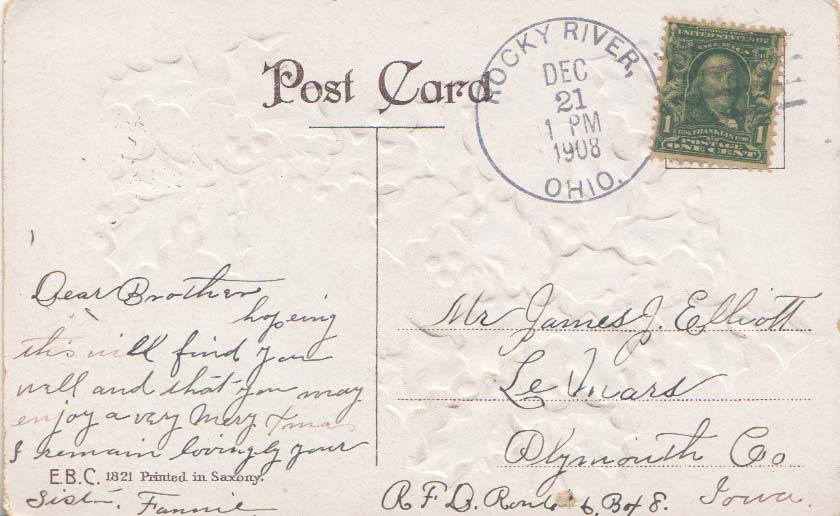 Post Card
ROCKY RIVER,
DEC
21
1 PM
1908
OHIO.
UNITED STATES OF
AMERICA
1 FRANKLIN 1
POSTAGE
ONE CENT
Dear Brother
hopeing
this will find you
well and that you may
enjoy a very Mery Xmas
I remain lovingly your
E.B.C. 1821 Printed in Saxony.
Sister, Fannie
Mr James J. Elliott
Le Mars
Plymouth Co
R.F.D. Route 6, Box 8. Iowa.